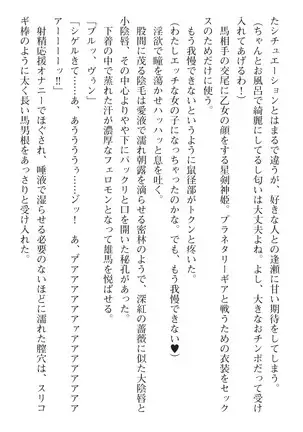 たシチュエーションとはまるで違うが、好きな人との逢瀬に甘い期待をしてしまう。
（ちゃんとお風呂で綺麗にしてるし匂いは大丈夫よね。よし、大きなおチンポだって受け
入れてあげるわ！）
馬相手の交尾に乙女の顔をする星剣神姫。プラネタリーギアと戦うための衣装をセック
スのためだけに使う。
もう我慢できないというように鼠径部がトクンと疼いた。
（わたしエッチな女の子になっちゃったのかな。でも、もう我慢できない♥）
淫欲で瞳を蕩かせハッハッと息を吐く。
股間に茂る陰毛は愛液で濡れ朝露を滴らせる密林のようで、深紅の薔薇に似た大陰唇と
小陰唇、その中心よりやや下にパックリと口を開いた秘孔があった。
下着の中で蒸れた汗が濃厚なフェロモンとなって雄馬を悦ばせる。
「ブルッ、ヴゥン」
「シゲルきて……あ、あうううぅぅ……ジッ！　あ、アアアアアアァァァアアアアアア
アーーーーッ!!」
射精応援オナニーでほぐされ、唾液で湿らせる必要のないほどに濡れた膣穴は、スリコ
ギ棒のように太く長い馬男根をあっさりと受け入れた。